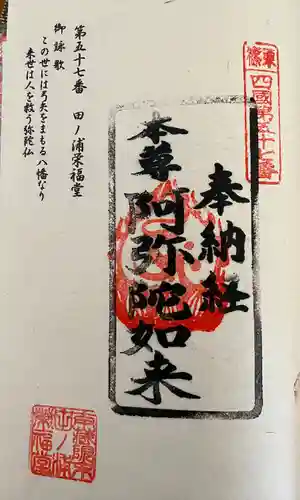 東
篠
四國第五十七番
奉納経
本尊阿弥陀如来
第五十七番 田ノ浦栄福堂
御詠歌
この世には弓矢をまもる八幡なり
来世は人を救う弥陀仏